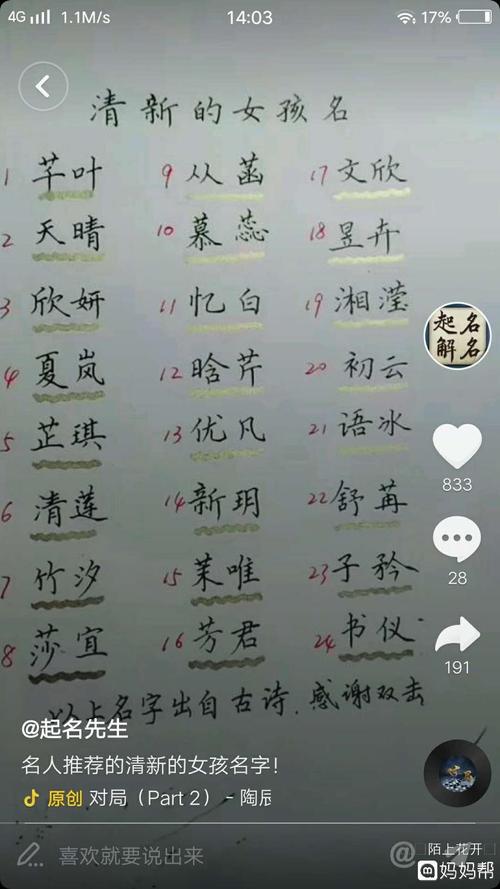 4G 1.1M/s 14:03 17%
清新的女孩名
1 芊叶 9 从菡 17 文欣
2 天晴 10 慕蕊 18 昱卉
3 欣妍 11 忆白 19 湘滢
4 夏岚 12 晗芹 20 初云
5 芷琪 13 优凡 21 语冰
6 清莲 14 新玥 22 舒苒
7 竹汐 15 茉唯 23 子矜
8 莎宜 16 芳君 24 书仪
以上名字出自古诗.感谢双击
起名
解名
833
28
191
@起名先生
名人推荐的清新的女孩名字！
原创 对局（Part 2） - 陶辰
陌上花开
喜欢就要说出来
@
妈妈帮